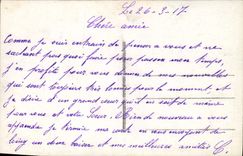 Le 26-3-17.
Chère amie
Comme je suis entrain de penser a vous et ne
sachant pas quoi faire pour passer mon temps,
j'en profite pour vous donner de mes nouvelles
qui sont toujours très bonnes pour le moment, et
je désire d'un grand cœur qu'il en soit de même
pour vous et votre sœur. Rien de nouveau a vous
apprendre je termine ma carte en vous envoyant de
loin un doux baiser et mes meilleures amitiés C.